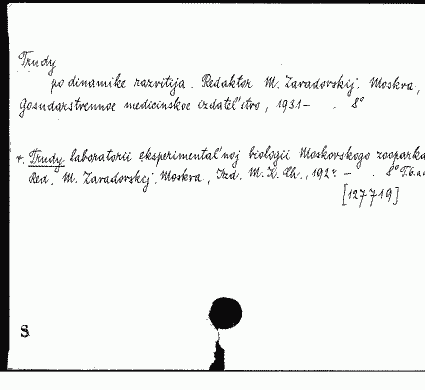 Trudy
po dinamike razvitija. Redaktor M. Zavadovskij. Moskva,
Gosudarstvennoe medicinskoe izdatel'stvo, 1931- . 8°
v. Trudy laboratorii eksperimental'noj biologii Moskovskogo zooparka
Red. M. Zavadovskij. Moskva, Izd. M. K. Ch., 192 - . 8° T.6.
[127719]
S